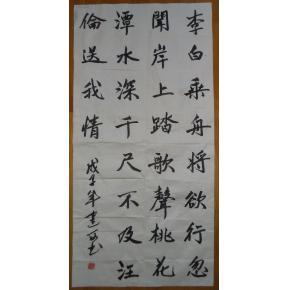 李白乘舟將欲行忽
聞岸上踏歌聲桃花
潭水深千尺不及汪
倫送我情
戊子年建西书